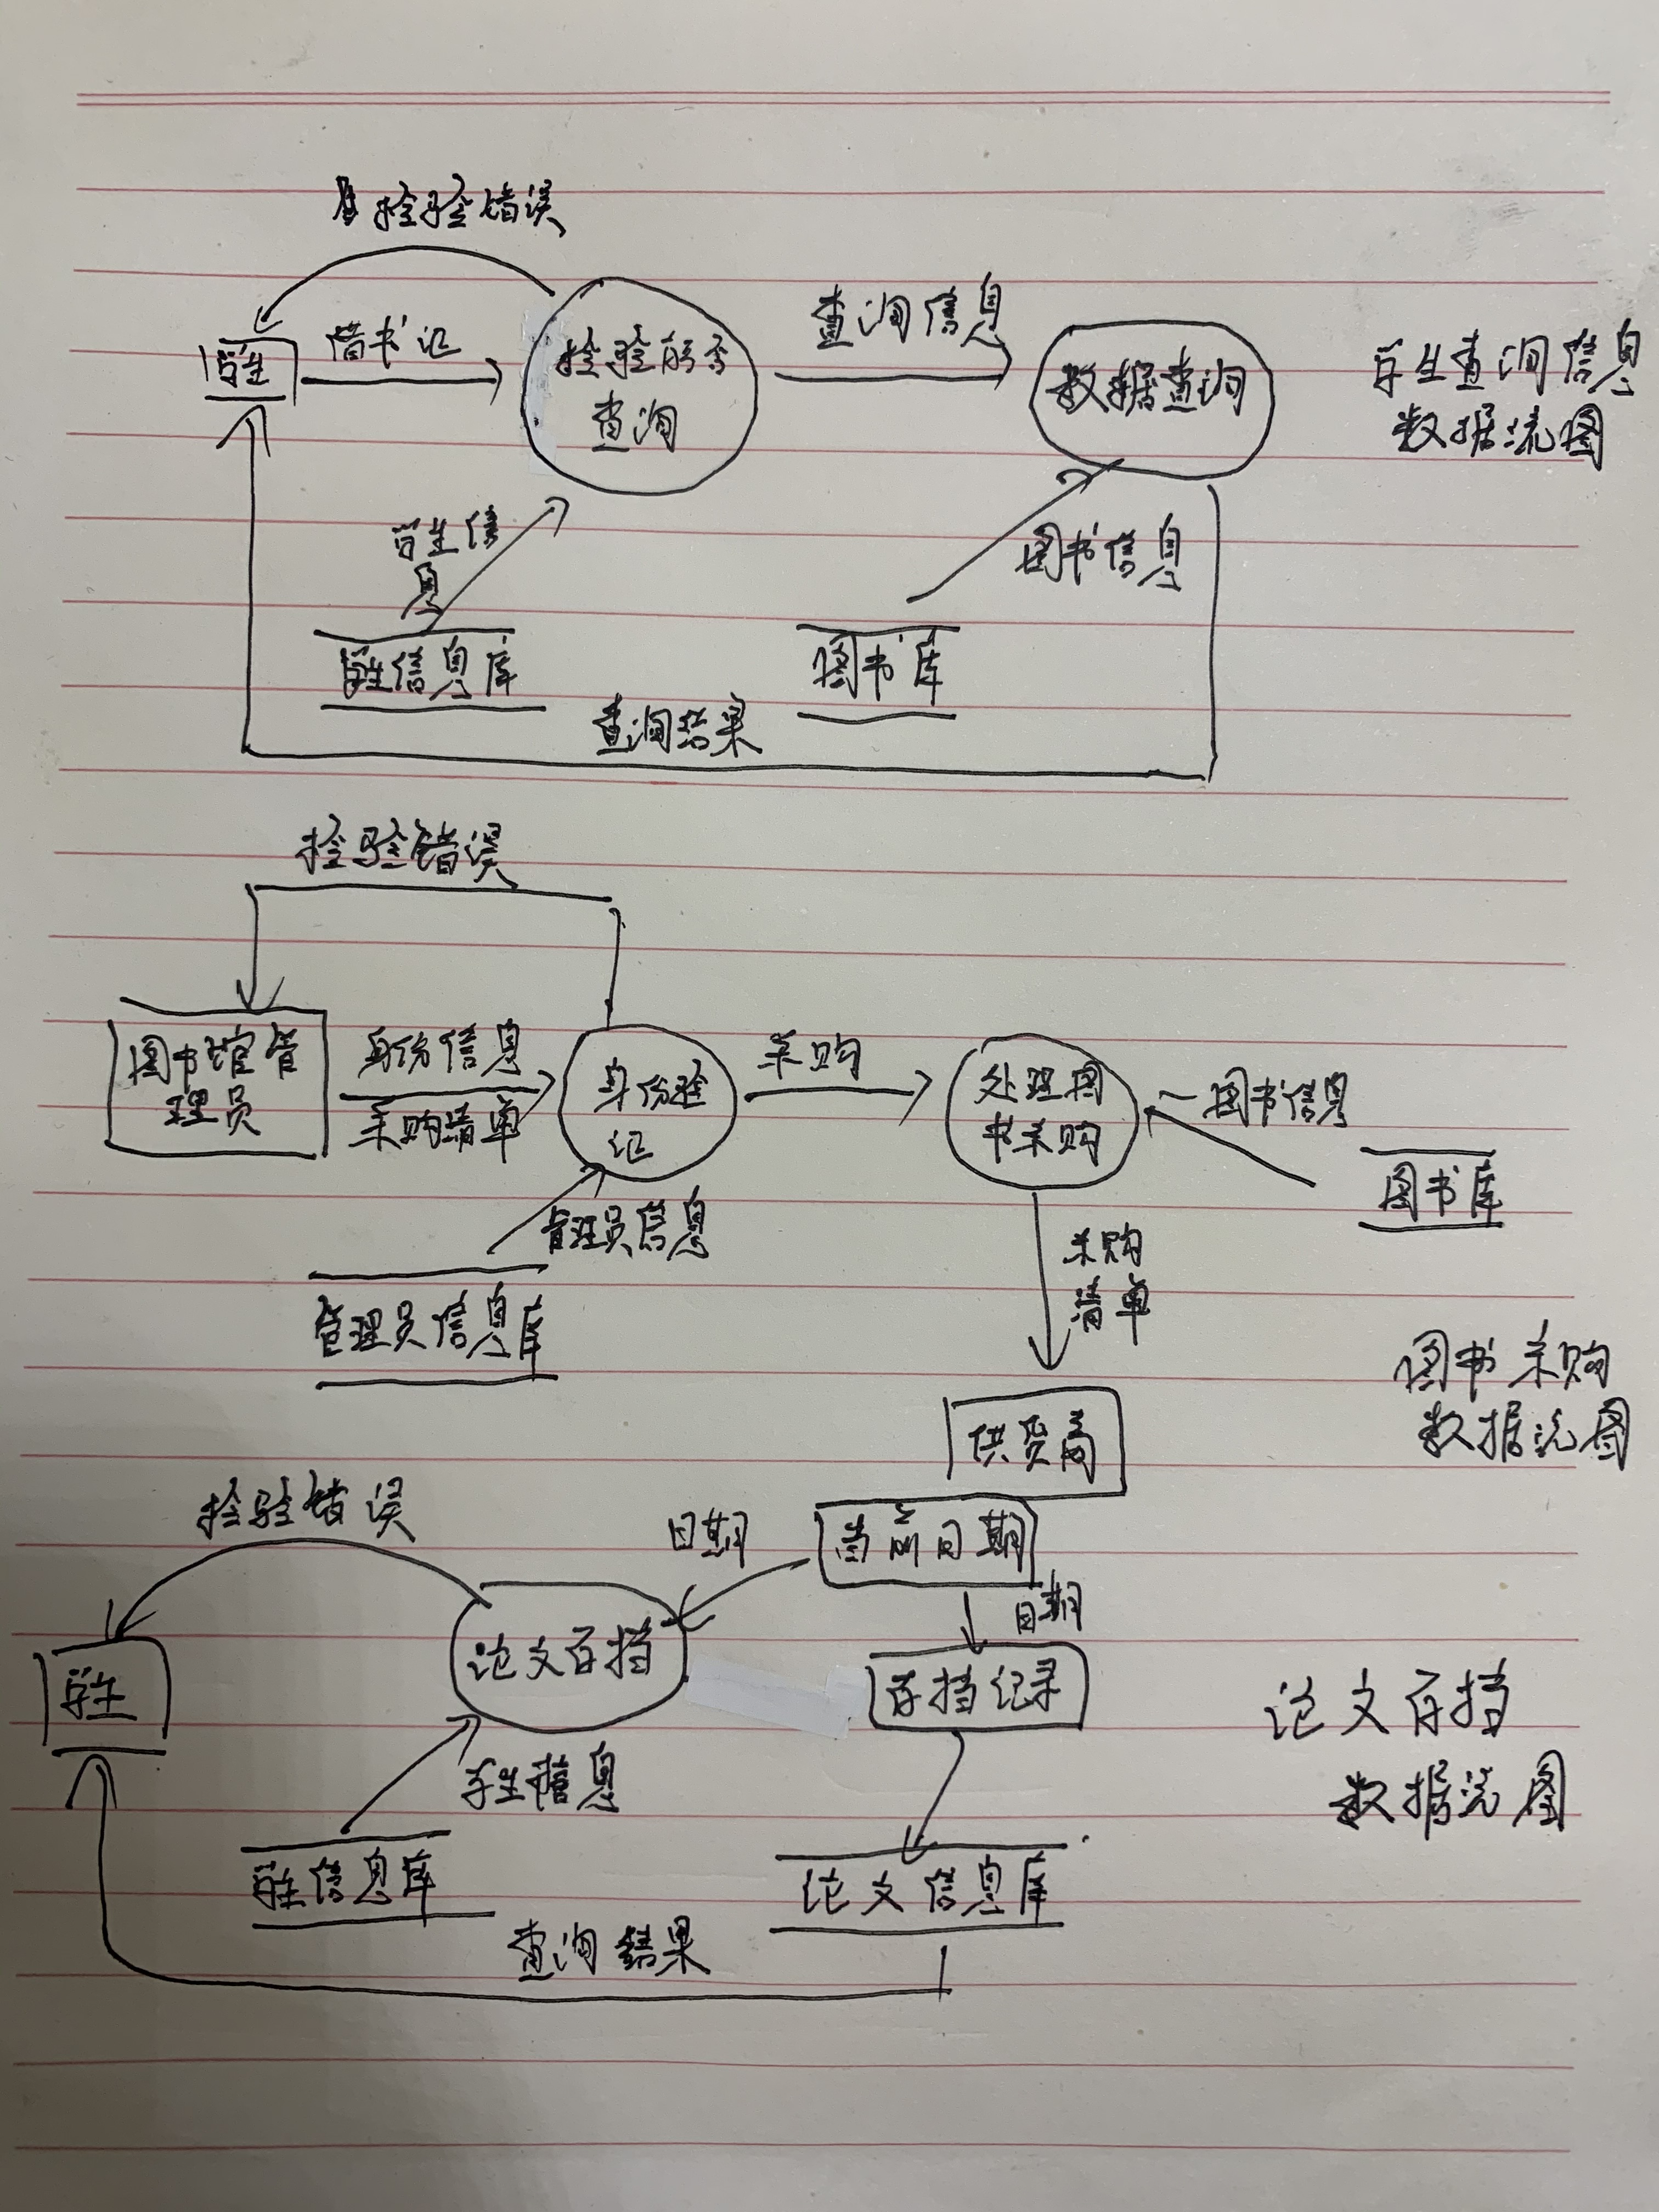 检验错误
学生
借书证
检验能否
查询
查询信息
数据查询
学生查询信息
数据流图
学生信
息
图书信息
学生信息库
图书库
查询结果
检验错误
图书馆管
理员
身份信息
采购清单
身份验
证
采购
处理图
书采购
图书信息
图书库
管理员信息
管理员信息库
采购
清单
供货商
图书采购
数据流图
检验错误
日期
当前日期
日期
学生
论文存档
存档记录
论文存档
数据流图
学生信息
学生信息库
论文信息库
查询结果